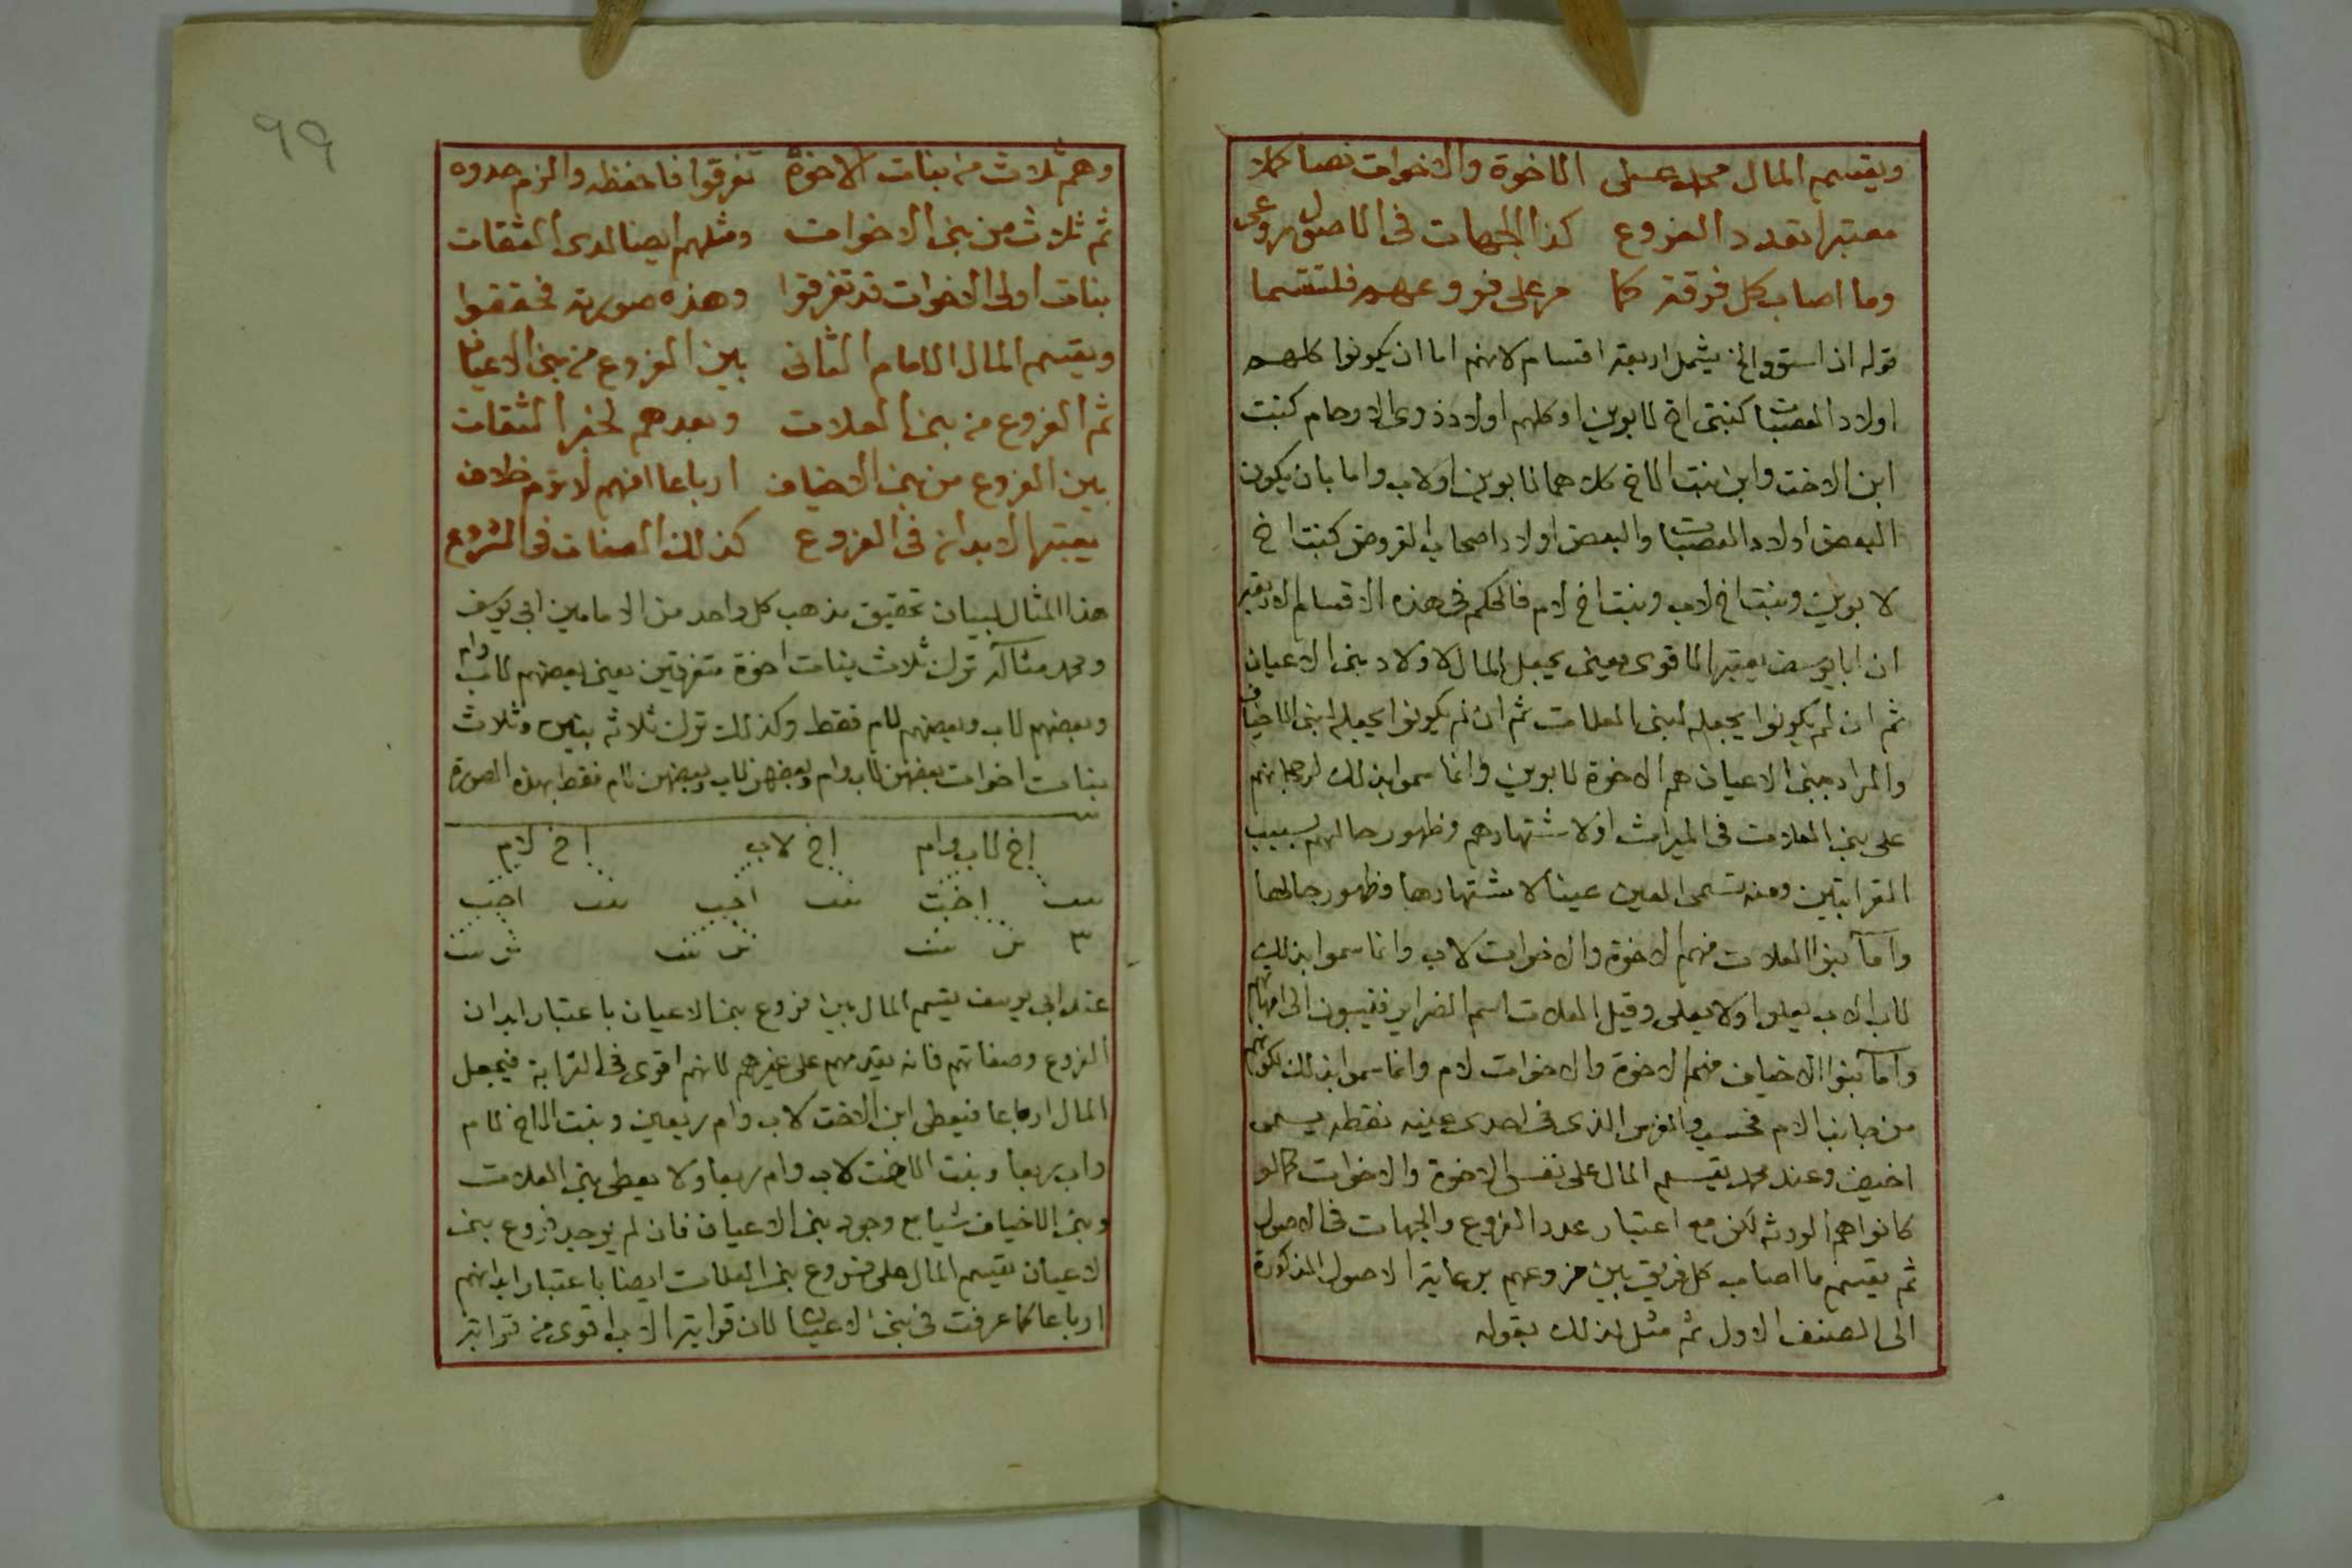 ويقسم المال محمد على الاخوة والاخوات نصا كملا
معتبرا تعدد الفروع كذا الجهات في الاصول روعي
وما اصاب كل فرقة كما مر على فروعهم فلتقسما
قوله اذ استووا الخ يشمل اربعة اقسام لانهم اما ان يكونوا كلهم
اولاد العصبات كبنتي اخ لابوين او كلهم اولاد ذوى الارحام كبنت
ابن الاخت وابن بنت الاخ كلاهما لابوين او لاب واما بان يكون
البعض اولاد العصبات والبعض اولاد اصحاب الفروض كبنت اخ
لابوين وبنت اخ لاب وبنت اخ لام فالحكم في هذه الاقسام الاربعة
ان ابا يوسف يعتبر الاقوى يعني يجعل المال لاولاد بنى الاعيان
ثم ان لم يكونوا يجعله لبنى العلات ثم ان لم يكونوا يجعله لبنى الاخياف
والمراد ببنى الاعيان هم الاخوة لابوين وانما سموا بذلك لرجحانهم
على بنى العلات في الميراث او لاشتهارهم وظهور حالهم بسبب
القرابتين ومنه تسمى العين عينا لاشتهارها وظهور حالها
واما بنوا العلات فهم الاخوة والاخوات لاب وانما سموا بذلك
لان الاب يعلوا ولا يعلى وقيل العلات اسم الضراير فنيسبون الى امهاتهم
واما بنوا الاخياف فهم الاخوة والاخوات لام وانما سموا بذلك لكونهم
من جانب الام فحسب والفرس الذى في احدى عينيه نقطه يسمى
اخيف وعند محمد يقسم المال على نفس الاخوة والاخوات كما لو
كانوا هم الورثه لكن مع اعتبار عدد الفروع والجهات في الاصول
ثم يقسم ما اصاب كل فريق بين فروعهم برعاية الاصول المذكورة
الى الصنف الاول ثم مثل لذلك بقوله
٩٩
وهم ثلاث من بنات الاخوة تفرقوا فاحفظه والزم حدوه
ثم ثلاث من بنى الاخوات ومثلهم ايضا لدى الثقات
بنات اولى الاخوات قد تفرقوا وهذه صورته فحققوا
ويقسم المال الامام الثانى بين الفروع من بنى الاعيان
ثم الفروع من بنى العلات وبعدهم لخير الثقات
بين الفروع من بنى الاخياف ارباعا افهم لا ترم خلاف
يعتبر الابدان في الفروع كذلك الصفات في الشروع
هذا المثال لبيان تحقيق مذهب كل واحد من الامامين ابي يوسف
ومحمد مثاله ترك ثلاث بنات اخوة متفرقين يعنى بعضهم لاب وام
وبعضهم لاب وبعضهم لام فقط وكذلك ترك ثلاثه بنين وثلاث
بنات اخوات بعضهن لاب وام وبعضهن لاب وبعضهن لام فقط بهذه الصورة
اخ لاب وام اخ لاب اخ لام
بنت اخت بنت اخت بنت اخت
٣ بن بنت بن بنت بن بنت
عند ابي يوسف يقسم المال بين فروع بنى الاعيان باعتبار ابدان
الفروع وصفاتهم فانه يقدمهم على غيرهم لانهم اقوى في القرابة فيجعل
المال ارباعا فيعطى ابن الاخت لاب وام ربعين وبنت الاخ لام
واب ربعا وبنت الاخت لاب وام ربعا ولا يعطى بنى العلات
وبنى الاخياف شيا مع وجود بنى الاعيان فان لم يوجد فروع بنى
لاعيان يقسم المال على فروع بنى العلات ايضا باعتبار ابدانهم
ارباعا كما عرفت في بنى الاعيان لان قرابة الاب اقوى من قرابة